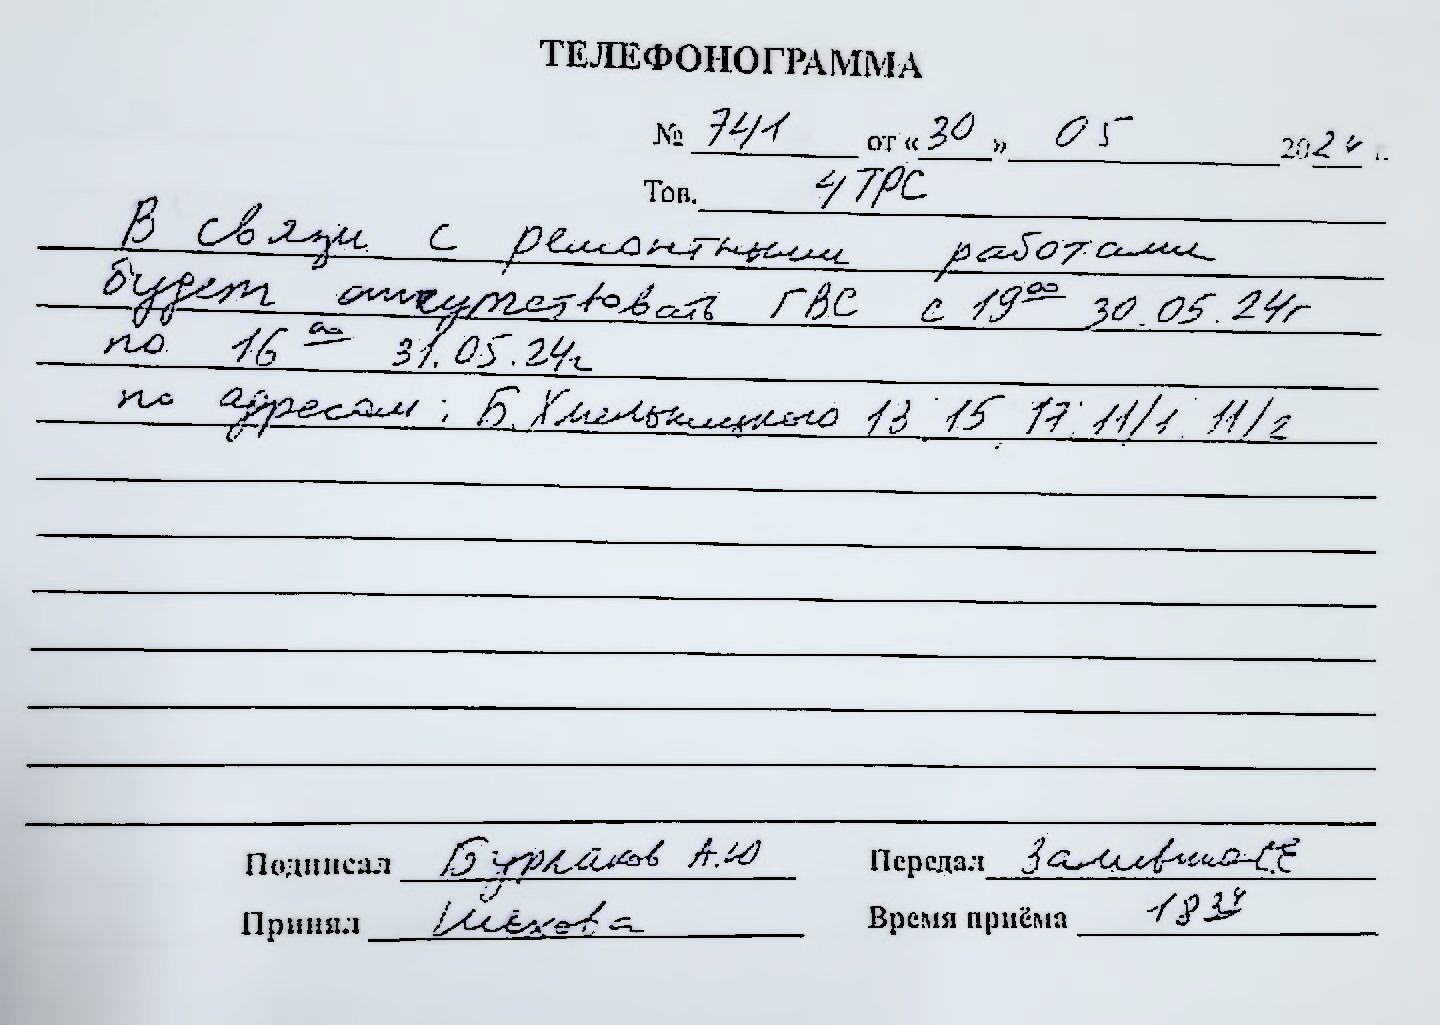 ТЕЛЕФОНОГРАММА
№ 741 от «30» 05 2024 г.
Тов. 4 ТРС
В связи с ремонтными работами
будет отсутствовать ГВС с 19 00 30.05.24г
по 16 00 31.05.24г
по адресам: Б. Хмельницкого 13, 15, 17, 11/1, 11/2
Подписал Бурлаков А.Ю Передал
Принял Шехова Время приёма 18 34